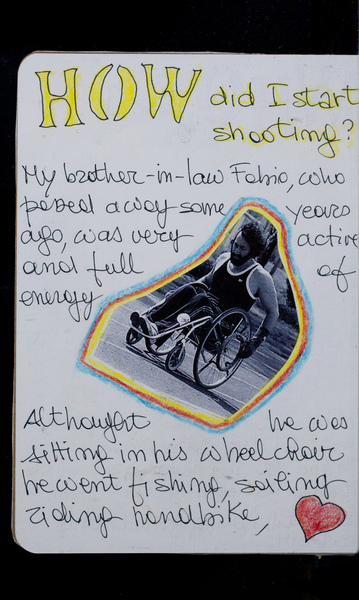 HOW did I start
shooting?
My brother-in-law Fabio, who
passed away some years
ago, was very active
and full of
energy
Althought he was
sitting in his wheelchair
he went fishing, sailing
riding handbike,